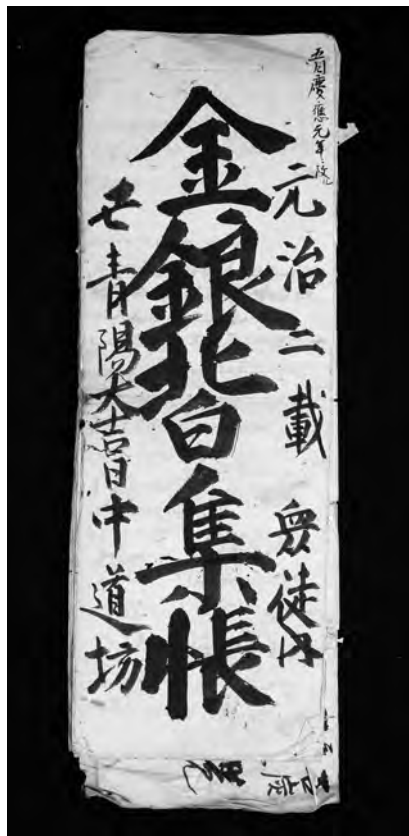 五月慶應元年改
元治二載 衆徒
金銀皆集帳
丑青陽大吉日中道坊